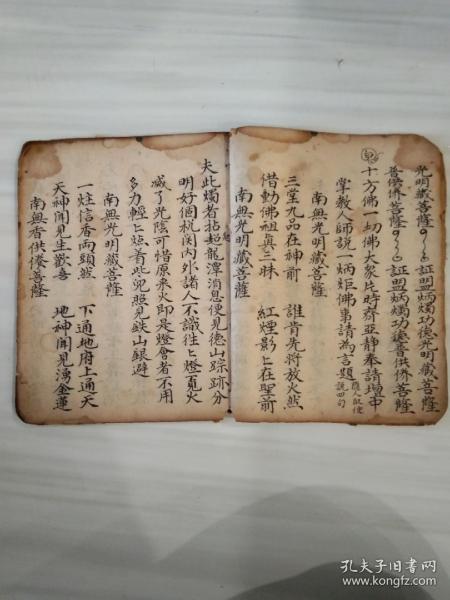 光明藏菩薩 証盟炳燭功德光明藏菩薩
普供俻菩薩 証盟炳燭功德普供俻菩薩
十方佛一切佛大衆片時齋亞静奉請壇中
掌教人師説一炳炬佛事請為言題
南無光明藏菩薩
三堂九品在神前 誰肯先將放火然
借動佛祖真三昧 紅煙影ヒ在聖前
南無光明藏菩薩
夫此燭者拈起龍潭消息便見德山踪跡分
明好個机関内外諸人不識往ヒ燈覓火
咸了光陰可惜原來火即是燈會者不用
多力輕ヒ㸃着些兜照見鉄山銀避
南無光明藏菩薩
一炷信香両頭然 下通地府上通天
天神聞見生歡喜 地神聞見湧金蓮
南無香供俻菩薩
孔夫子旧書网
www.kongfz.com